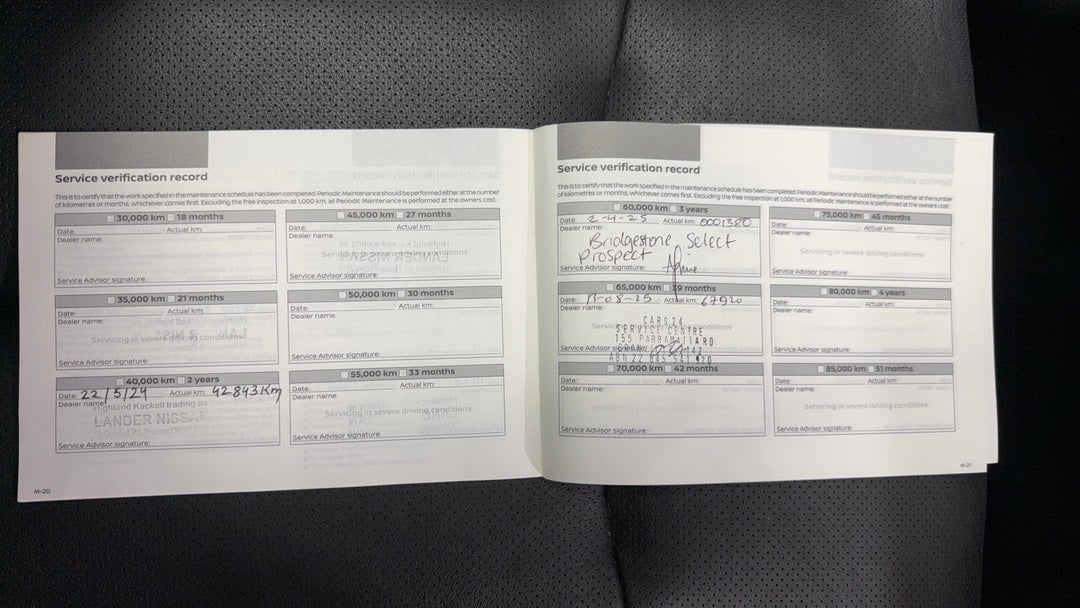 Service verification record
This is to certify that the work specified in the maintenance schedule has been completed. Periodic Maintenance should be performed either at the number
of kilometres or months, whichever comes first. Excluding the free inspection at 1,000 km, all Periodic Maintenance is performed at the owners cost.
30,000 km 18 months
Date: Actual km:
Dealer name:
Service Advisor signature:
35,000 km 21 months
Date: Actual km:
Dealer name:
Servicing in severe driving conditions
Service Advisor signature:
40,000 km 2 years
Date: 22/5/24 Actual km: 42843Km
Dealer name:
Highland Kackell trading as
LANDER NISSAN
Service Advisor signature:
45,000 km 27 months
Date: Actual km:
Dealer name:
Servicing in severe driving conditions
Service Advisor signature:
50,000 km 30 months
Date: Actual km:
Dealer name:
Service Advisor signature:
55,000 km 33 months
Date: Actual km:
Dealer name:
Servicing in severe driving conditions
Service Advisor signature:
M-20
Service verification record
This is to certify that the work specified in the maintenance schedule has been completed. Periodic Maintenance should be performed either at the number
of kilometres or months, whichever comes first. Excluding the free inspection at 1,000 km, all Periodic Maintenance is performed at the owners cost.
60,000 km 3 years
Date: 2-4-25 Actual km: 0001380
Dealer name:
Bridgestone Select
Prospect
Service Advisor signature:
65,000 km 39 months
Date: 13-08-25 Actual km: 67920
Dealer name:
Servicing in severe driving conditions
CARS24
SERVICE CENTRE
155 PARRAMATTA RD
Service Advisor signature:
ABN 22 645 541
70,000 km 42 months
Date: Actual km:
Dealer name:
Service Advisor signature:
75,000 km 45 months
Date: Actual km:
Dealer name:
Servicing in severe driving conditions
Service Advisor signature:
80,000 km 4 years
Date: Actual km:
Dealer name:
Service Advisor signature:
85,000 km 51 months
Date: Actual km:
Dealer name:
Servicing in severe driving conditions
Service Advisor signature:
M-21